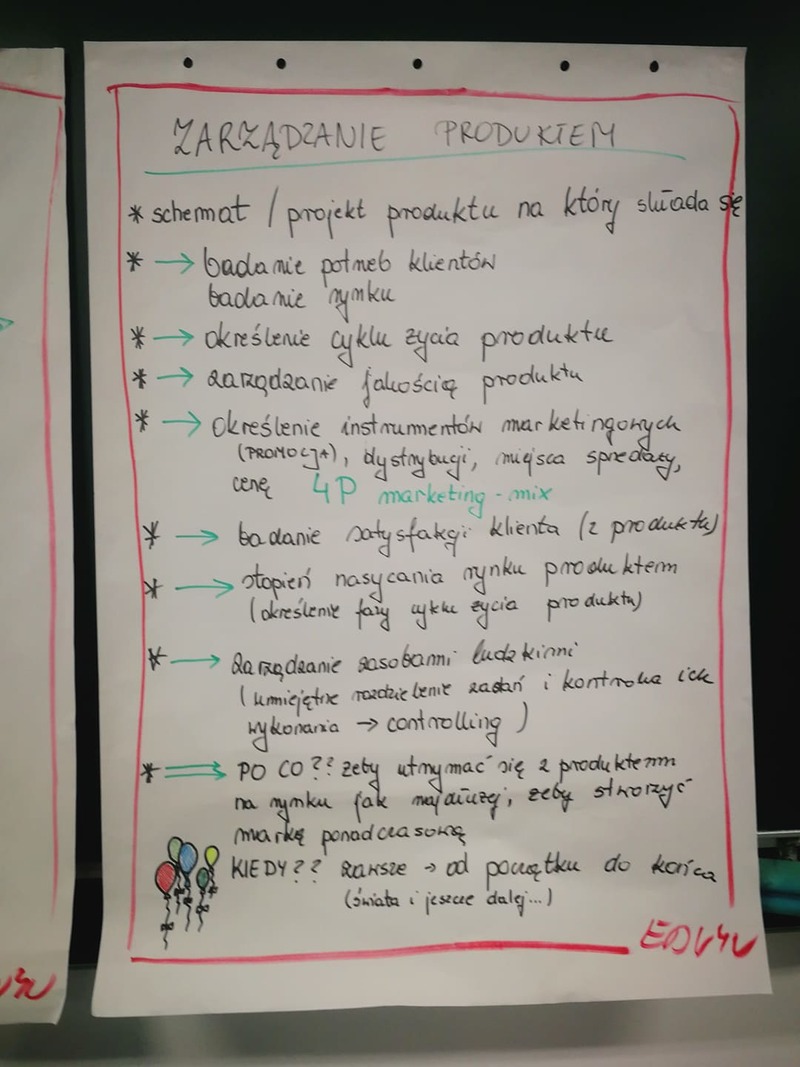 ZARZĄDZANIE PRODUKTEM
* schemat / projekt produktu na który składa się
* → badanie potrzeb klientów
badanie rynku
* → określenie cyklu życia produktu
* → zarządzanie jakością produktu
* → określenie instrumentów marketingowych
(PROMOCJA), dystrybucji, miejsca sprzedaży,
cenę 4P marketing-mix
* → badanie satysfakcji klienta (z produktu)
* → stopień nasycania rynku produktem
(określenie fazy cyklu życia produktu)
* → zarządzanie zasobami ludzkimi
(umiejętne rozdzielenie zadań i kontrola ich
wykonania → controlling)
* ⇒ PO CO?? żeby utrzymać się z produktem
na rynku jak najdłużej, żeby stworzyć
markę ponadczasową
KIEDY?? zawsze → od początku do końca
(świata i jeszcze dalej...)